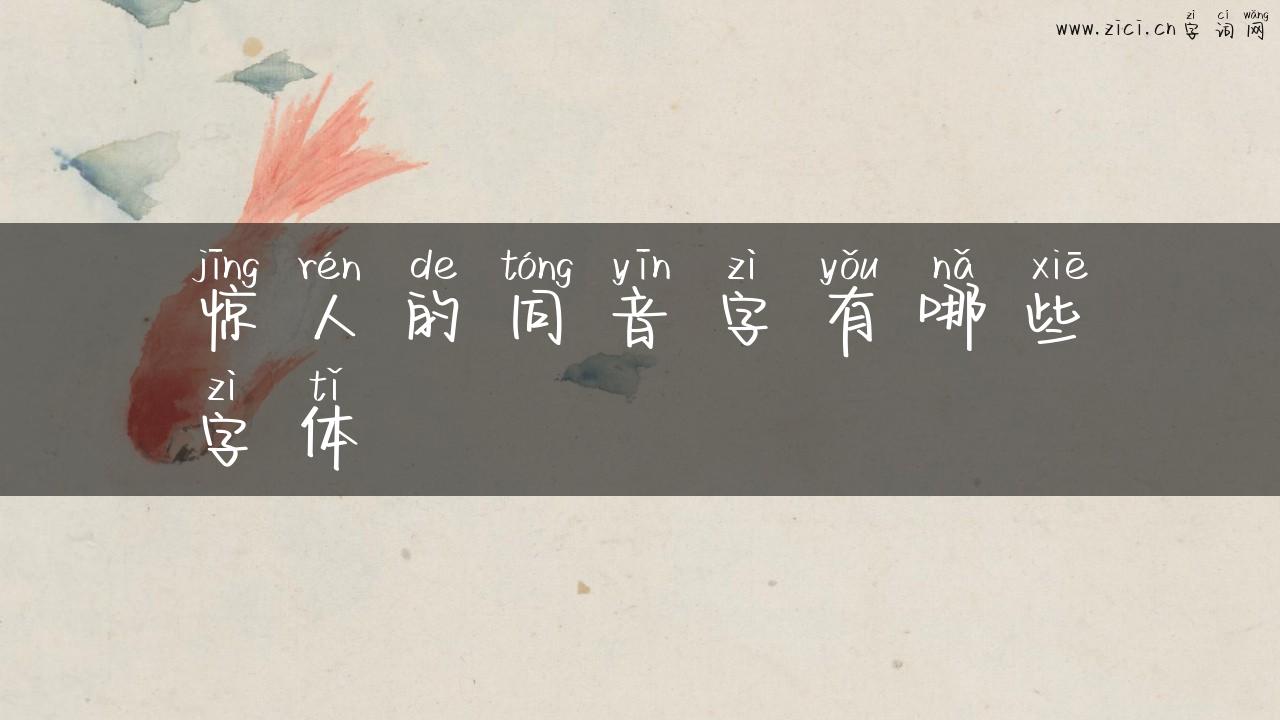 zì cí wǎng
www.zici.cn 字词网
jīng rén de tóng yīn zì yǒu nǎ xiē
惊人的同音字有哪些
zì tǐ
字体